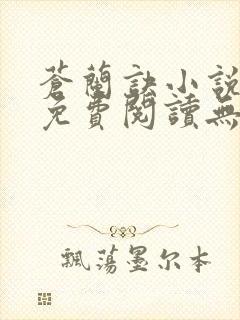 蒼蘭訣小說
免費閱讀無
飄蕩墨尔本